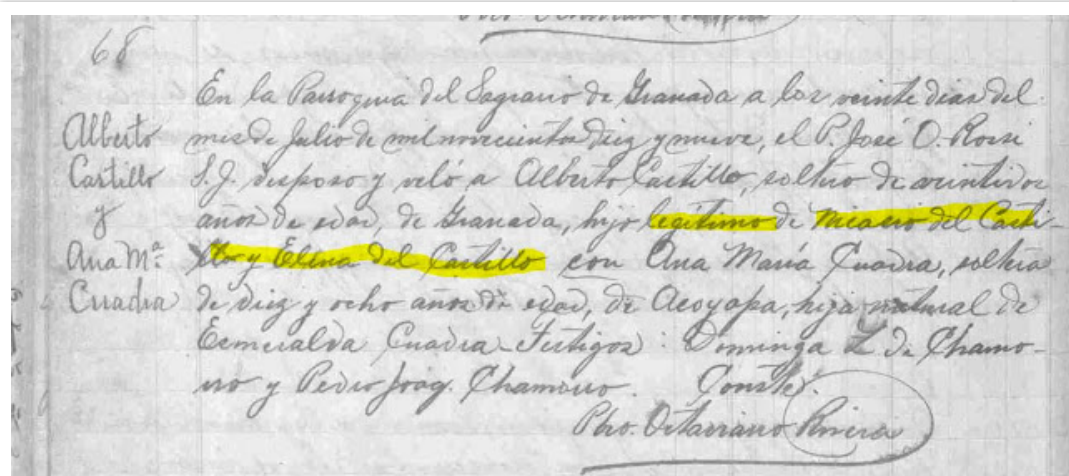 68
Alberto
Castillo
y
Ana Mª
Cuadra
En la Parroquia del Sagrario de Granada a los veinte dias del
mes de Julio de mil novecientos diez y nueve, el P. José O. Rossi
S. J. desposo y veló a Alberto Castillo, soltero de veintidos
años de edad, de Granada, hijo legítimo de Micario del Casti-
llo y Elena del Castillo con Ana María Cuadra, soltera
de diez y ocho años de edad, de Acoyapa, hija natural de
Esmeralda Cuadra - Testigos: Dominga L. de Chamo-
rro y Pedro Joaq. Chamorro. Conste.
Pbro. Octaviano Rivera